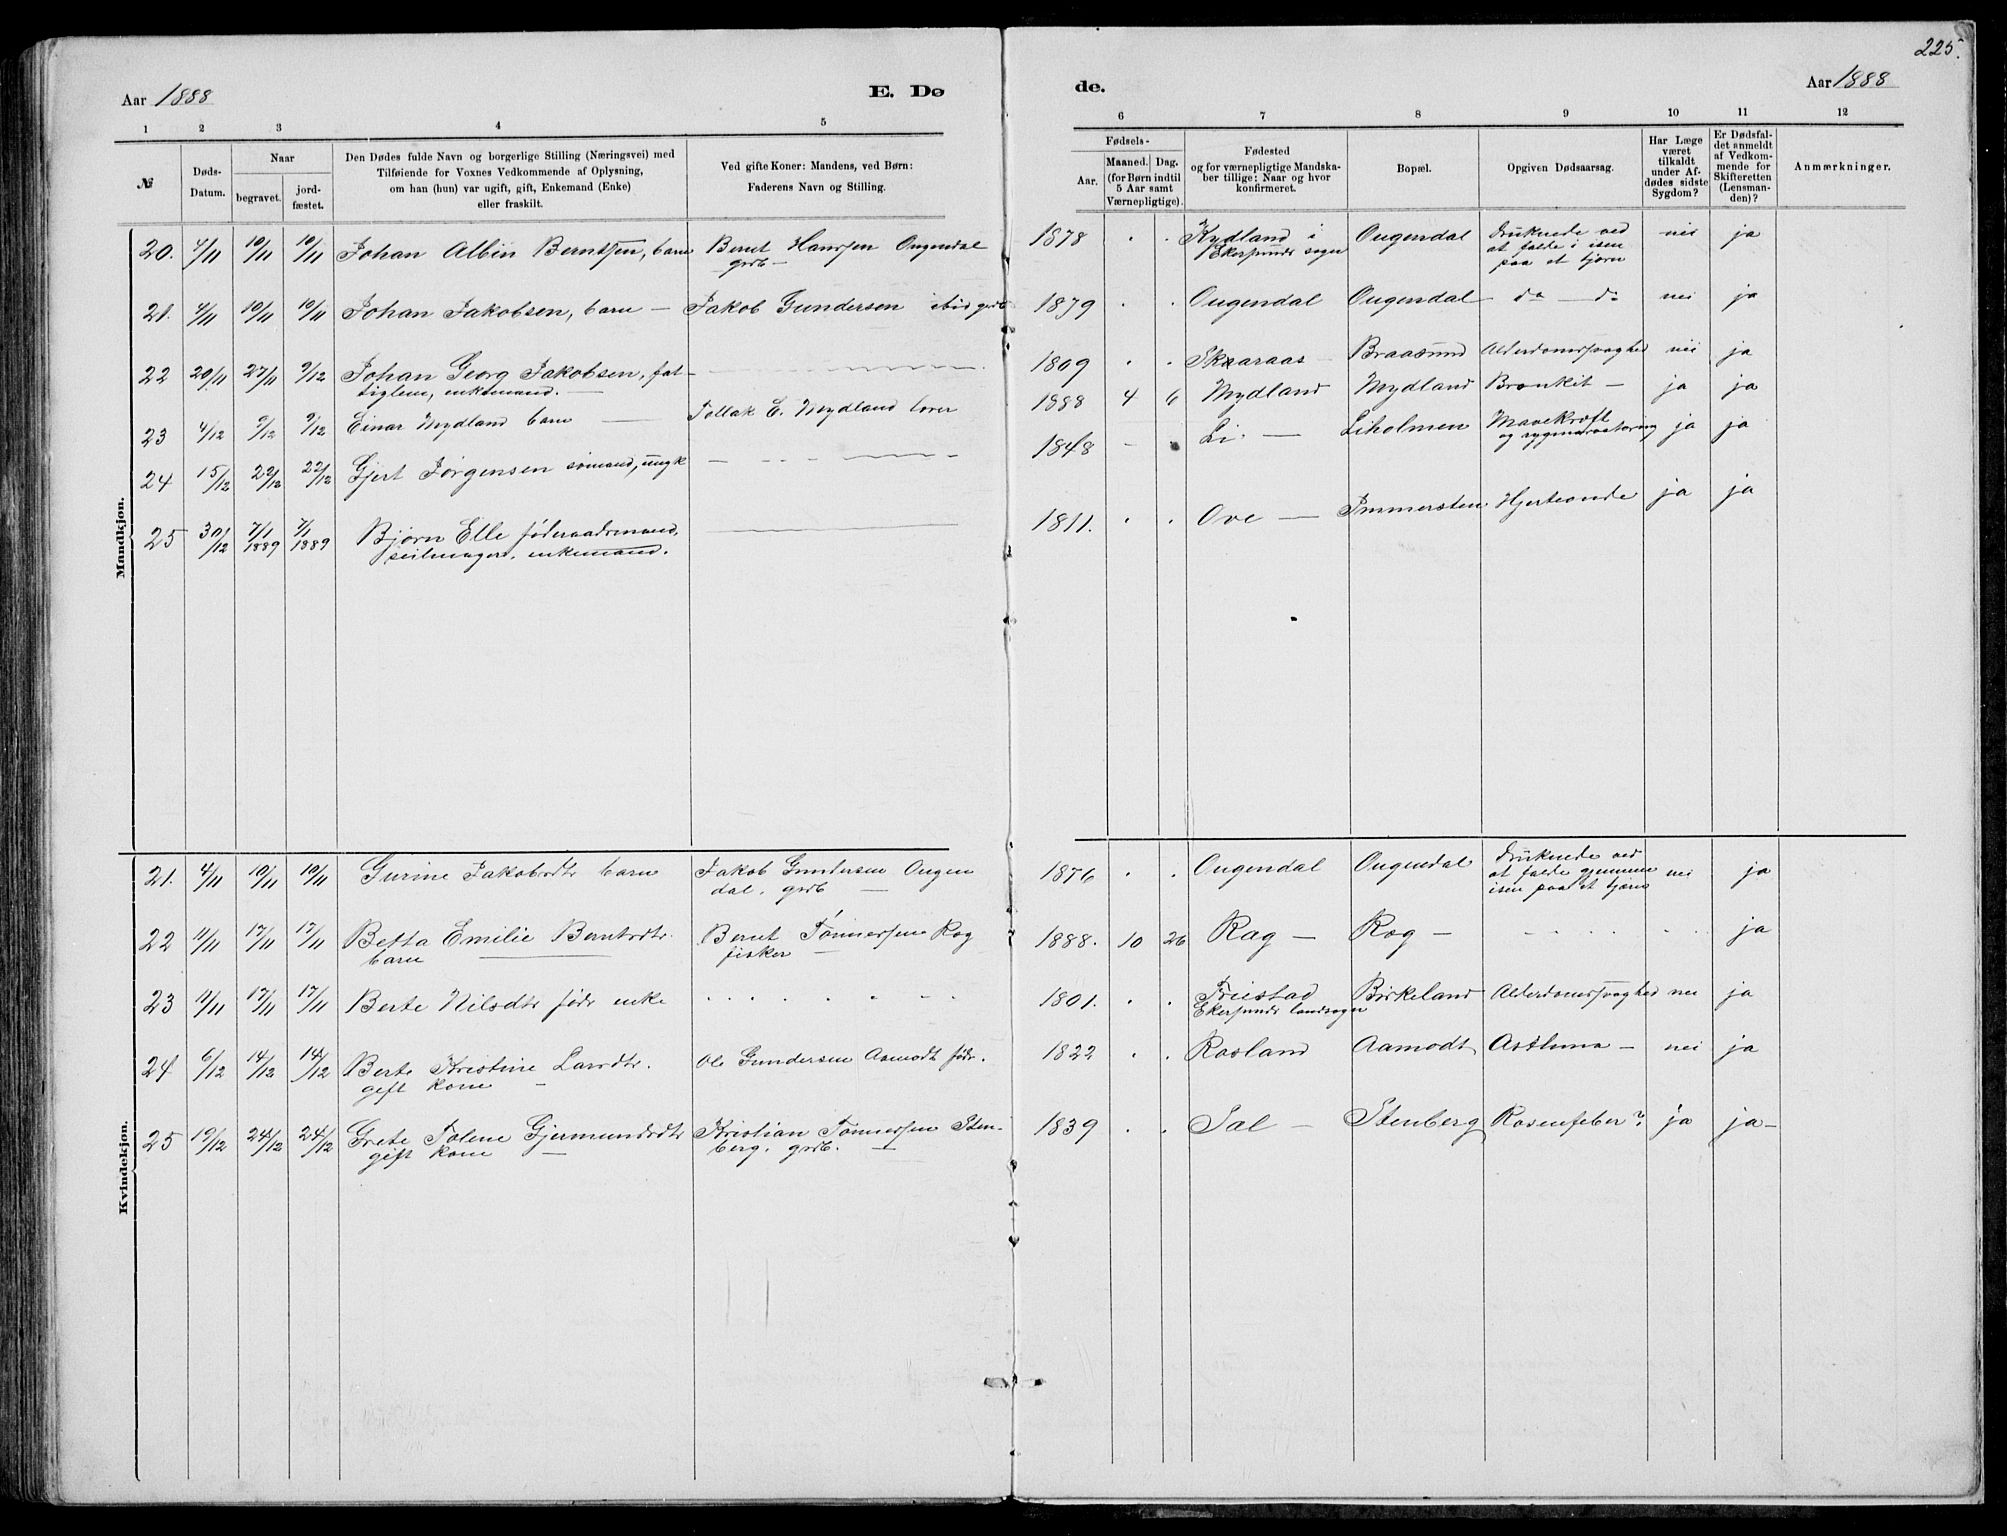 225.
Aar 1888
E. Dø
de.
Aar 1888
1 2 3 4 5 6 7 8 9 10 11 12
№
Døds-Datum.
Naar
begravet.
jord-fæstet.
Den Dødes fulde Navn og borgerlige Stilling (Næringsvei) med
Tilføiende for Voxnes Vedkommende af Oplysning,
om han (hun) var ugift, gift, Enkemand (Enke)
eller fraskilt.
Ved gifte Koner: Mandens, ved Børn:
Faderens Navn og Stilling.
Fødsels-
Aar.
Maaned. Dag.
(for Børn indtil
5 Aar samt
Værnepligtige).
Fødested
og for værnepligtige Mandska-
ber tillige: Naar og hvor
konfirmeret.
Bopæl.
Opgiven Dødsaarsag.
Har Læge
været
tilkaldt
under Af-
dødes sidste
Sygdom?
Er Dødsfal-
det anmeldt
af Vedkom-
mende for
Skifteretten
(Lensman-
den)?
Anmærkninger.
Mandkjøn.
20. 4/11 10/11 10/11 Johan Albin Berntsen, barn Bernt Hanssen Ougendal 1878 Kydland i Ougendal Druknede ved nei ja
grdb — Ekersunds sogn at falde i isen
paa et tjern
21. 4/11 10/11 10/11 Johan Jakobsen, barn — Jakob Gundersen ibid grdb 1879 Ougendal Ougendal do — do nei ja
22 20/11 27/11 9/12 Johan Georg Jakobsen, fat- 1809 Skaaraas Braasund Alderdomssvaghed nei ja
tiglem, enkemand. —
23 4/12 9/12 9/12 Einar Mydland barn — Tollak E. Mydland 1888 4 6 Mydland Mydland Bronkit — ja ja
24 15/12 22/12 22/12 Gjert Jørgensen sømand, ungk 1848 Li — Liholmen Mavekræft ja ja
og rygmarvstæring
25 30/12 7/1 1889 7/1 1889 Bjørn Elle føderaadsmand, 1811. Ove — Immersten Hjerteonde ja ja
seilmager, enkemand.
Kvindekjøn.
21. 4/11 10/11 10/11 Gurine Jakobsdtr barn Jakob Gundersen Ougen 1876 Ougendal Ougendal Druknede ved nei ja
dal. grdb — at falde gjennem
isen paa et tjern
22 11/11 17/11 17/11 Betta Emilie Berntsdtr. Bernt Tønnessen Rog 1888. 10 26 Rog — Rog — ja
barn fisker —
23 11/11 17/11 17/11 Berte Nilsdtr fødr enke 1801. Friestad Birkeland Alderdomssvaghed nei ja
Ekersunds landsogn
24 6/12 14/12 14/12 Berte Kristine Larsdtr. Ole Gundersen Aamodt fødr. 1822 Rosland Aamodt Asthma — nei ja
gift kone —
25 19/12 24/12 24/12 Grete Tolene Gjermundsdtr Kristian Tønnessen Sten- 1839 Sal — Stenberg Rosenfeber? ja ja —
gift kone — berg. grdb. —